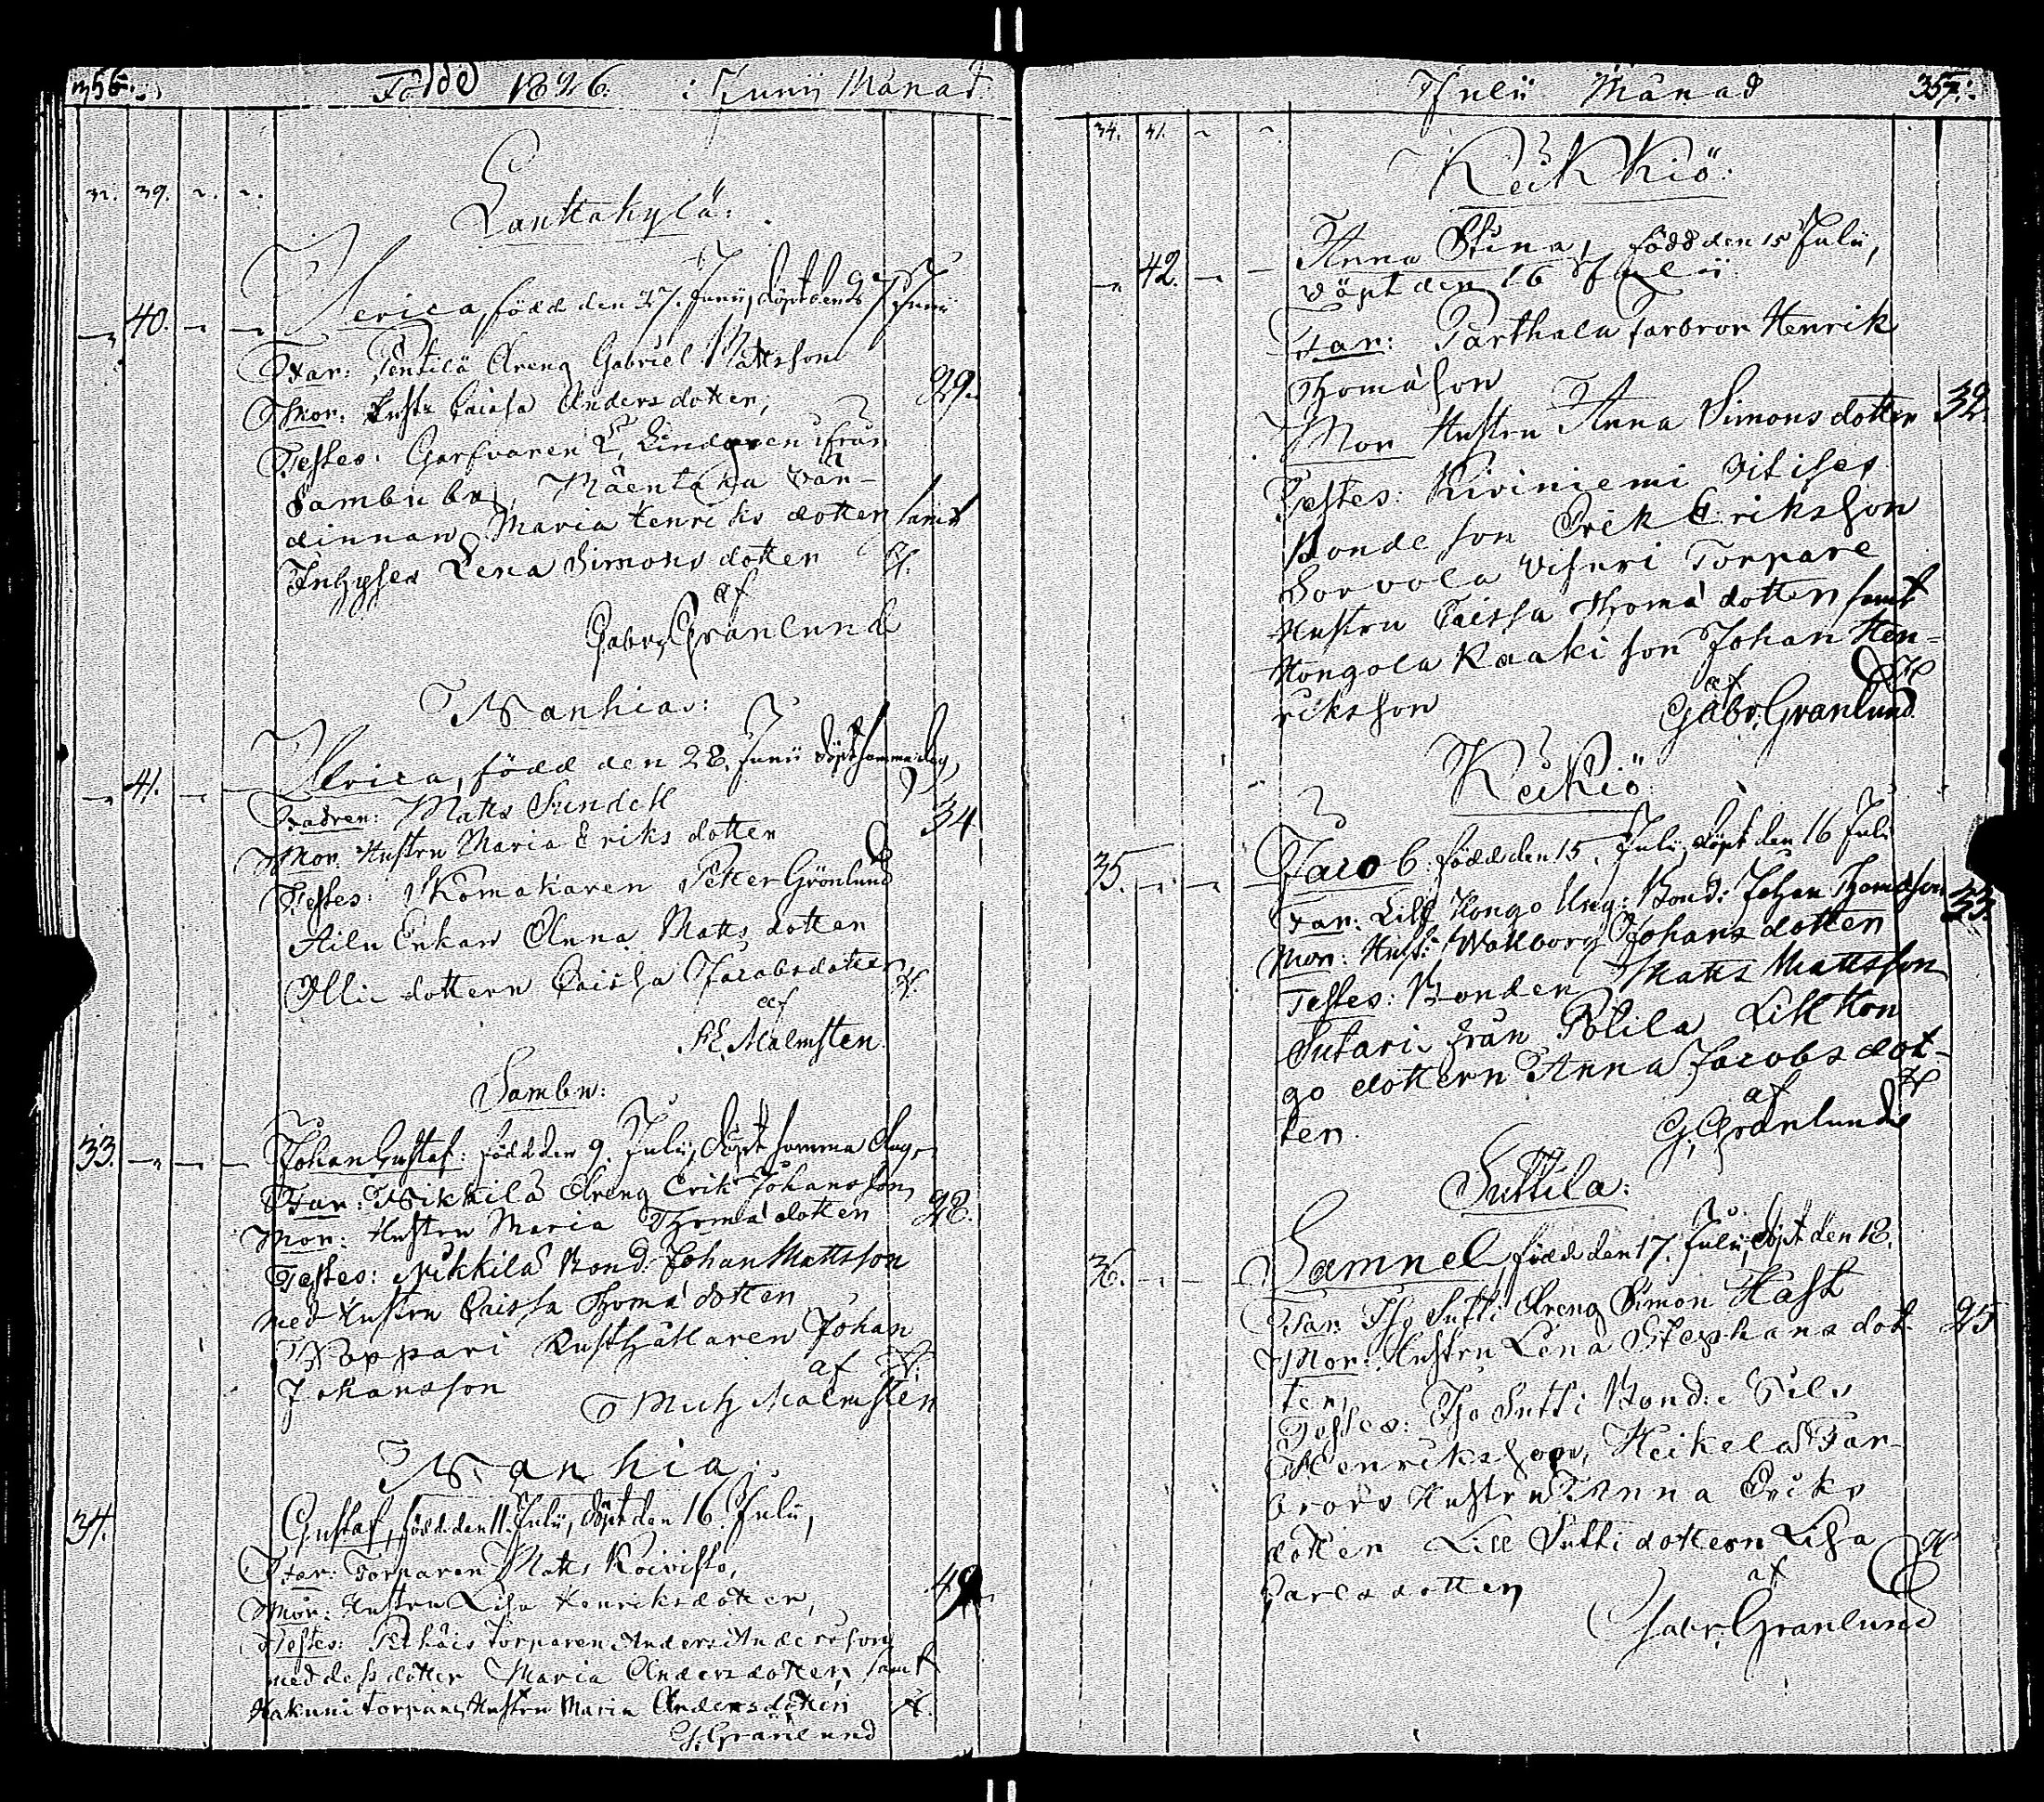 356.
Född 1826. i Junii Månad
32. 39. ~. ~.
Lauttakylä:
Ulrica, född den 27. Junii, döpt dend 29 Junii
40.
Far: Pentilä Dreng Gabriel Mattsson
Mor: Hustr Caissa Anders dotter;
29.
Testes: Garfvaren L. Lindgren ifrån
Sambu by, Mäentaka Vär-
dinnan Maria Henriks dotter samt
Inhyses Lena Simons dotter
af
Gabr. Granlund
Wanhia:
Ulrica, född den 28. Junii döpt samma dag,
41.
Fadren: Matts Sundell
34
Mor Hustru Maria Eriks dotter
Testes: Skomakaren Petter Grönlund
Ailu Enkan Anna Matts dotter
Olli dottern Caissa Jacobs dotter
af
Malmsten.
Sambu:
33.
Johan Gustaf: född den 9. Julii, döpt samma dag,
Far: Nikkilä Dreng Erik Johansson
28.
Mor: Hustru Maria Thoma dotter
Testes: Nikkilä Bond. Johan Mattsson
med Hustru Caissa Thoma dotter
Pappari Rusthållaren Johan
Johansson
af
Mich Malmsten
Wanhia:
34.
Gustaf, född den 11. Julii, döpt den 16. Julii,
Far: Torparen Matts Koivisto,
Mor: Hustru Lisa Henriksdotter,
Testes: torparen Anders Andersson
med dess dotter Maria Anders dotter, samt
Hakuni torpare Hustru Maria Anders dotter
G. Granlund
Julii Månad
357.
34. 41. ~ ~
Keikkiö:
Anna Stina, född den 15 Julii,
42.
döpt den 16 Julii
Far: Parthala farbror Henrik
Thomasson
Mor Hustru Anna Simons dotter
32
Testes: Kiviniemi
Bonde son Erik Eriksson
Sorvola Torpare
Hustru Caissa Thoma dotter samt
Hongola Kaaki son Johan Hen-
riksson
af
Gabr. Granlund.
Keikiö:
35.
Jacob född den 15. Julii, döpt den 16 Julii
Far: Lill Hongo Ung: Bond: Johan Thomasson
33.
Mor: Hust: Wallborg Johans dotter
Testes: Bonden Matts Mattsson
Sutari från Polila Lill Hon
go dottern Anna Jacobs dot-
ten
af
G. Granlund
Suttila:
36.
Samuel, född den 17. Julii, döpt den 18.
Far: Iso Sutti Dreng Simon Hast
Mor: Hustru Lena Stephans dot
25
ter,
Testes: Iso Sutti Bond:
Henriksson, Heikkelä Far-
brors Hustru Anna Eriks
dotter Lill Sutti dottern Lisa
Carls dotter
af
Gabr. Granlund